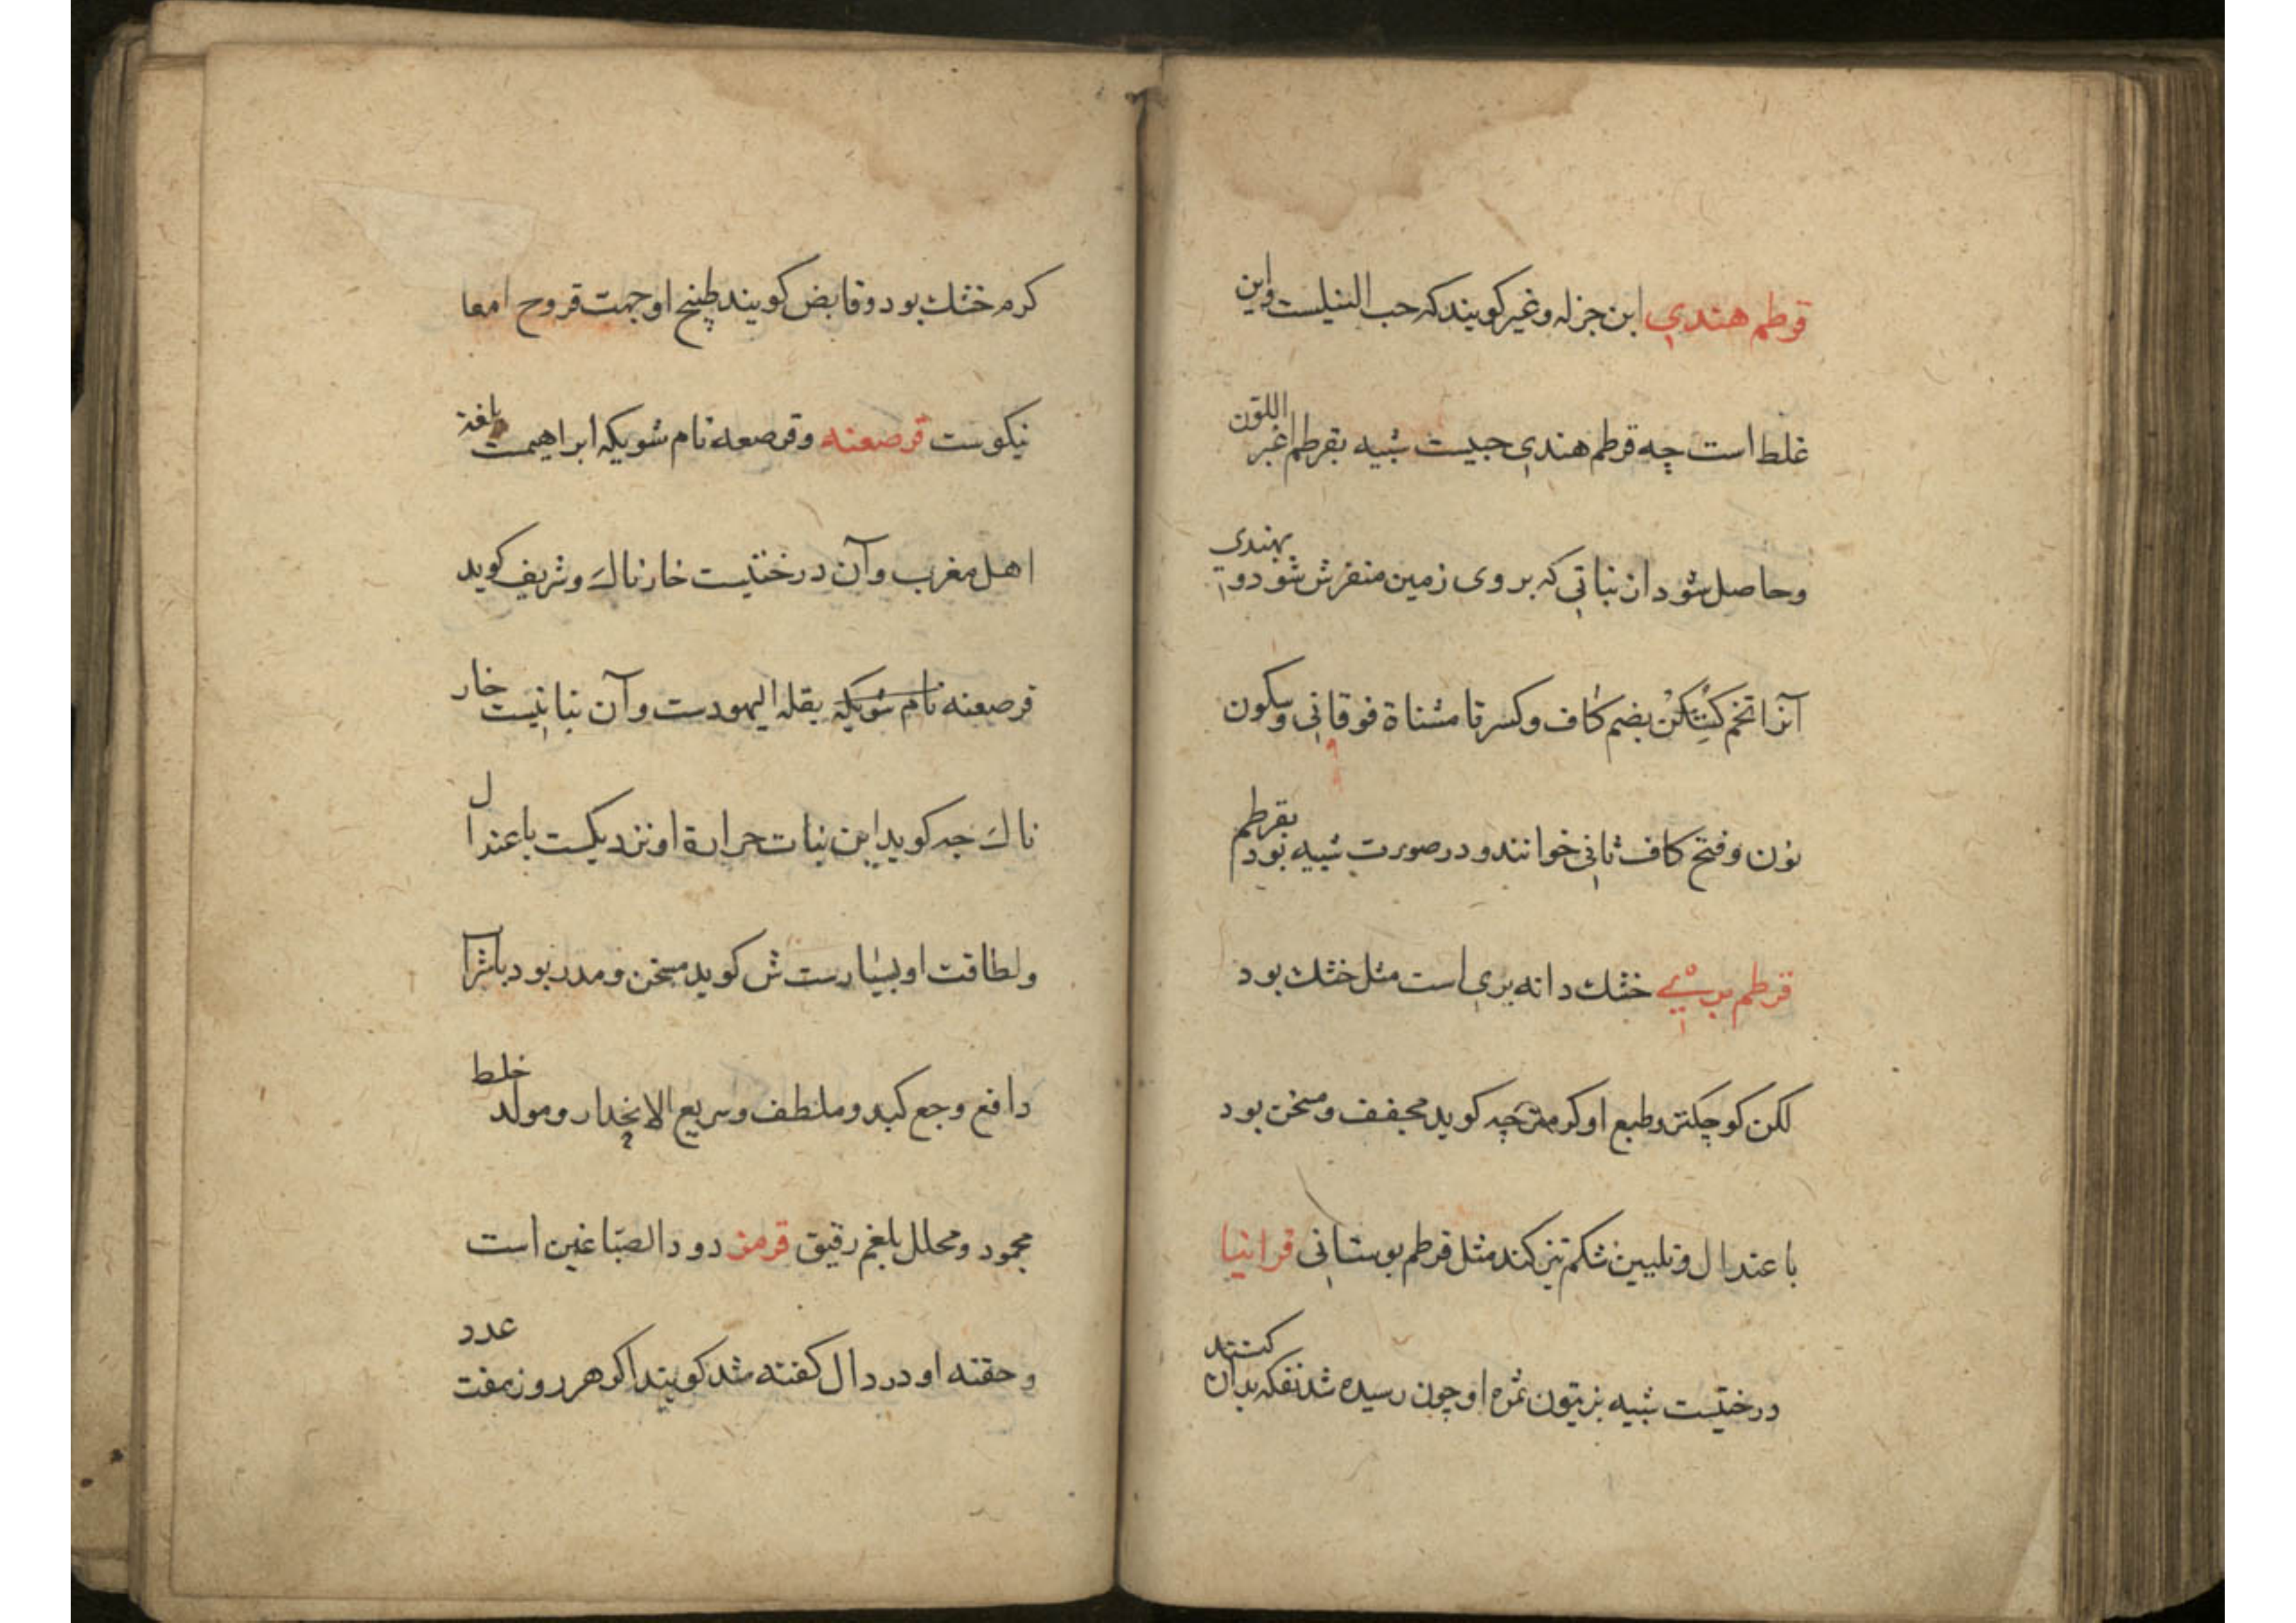 قرطم هندي ابن جزله وغیر کویند که حب النیلست واین
غلط است چه قرطم هندي حبیست شبیه بقرطم اغبر اللون
وحاصل شود از نباتي که بر وی زمین منفرش شود و بهندي
آنرا تخم کتنکن بضم کاف وکسر تا مثناة فوقاني وسکون
نون وفتح کاف ثاني خوانند ودر صورت شبیه بود بقرطم
قرطم بري خشك دانه بري است مثل خشك بود
لکن کوچکتر وطبع او کرمتر چه کوید مجفف ومسخن بود
باعتدال وتلیین شکم نیز کند مثل قرطم بوستاني قرانیا
درختیست شبیه بزیتون ثمره او چون رسیده شد تفکه بدان کنند
کرم خشك بود وقابض کویند طبیخ او جهت قروح امعا
نیکوست قرصعنه وقرصعه نام شویکه ابراهیمست بلغة
اهل مغرب وآن درختیست خارناك وشریف کوید
قرصعنه نام شویکه بقلة الیهودست وآن نباتیست خار
ناك چه کوید این نبات حرارة او نزدیکست باعتدال
ولطافت او بسیارست ش کوید مسخن ومدر بود باشرا
دافع وجع کبد وملطف وسریع الانحدار ومولد خلط
محمود ومحلل بلغم رقیق قرمز دود الصباغین است
وحقنه او در دال کفته شد کویند اکر هر روز هفت عدد